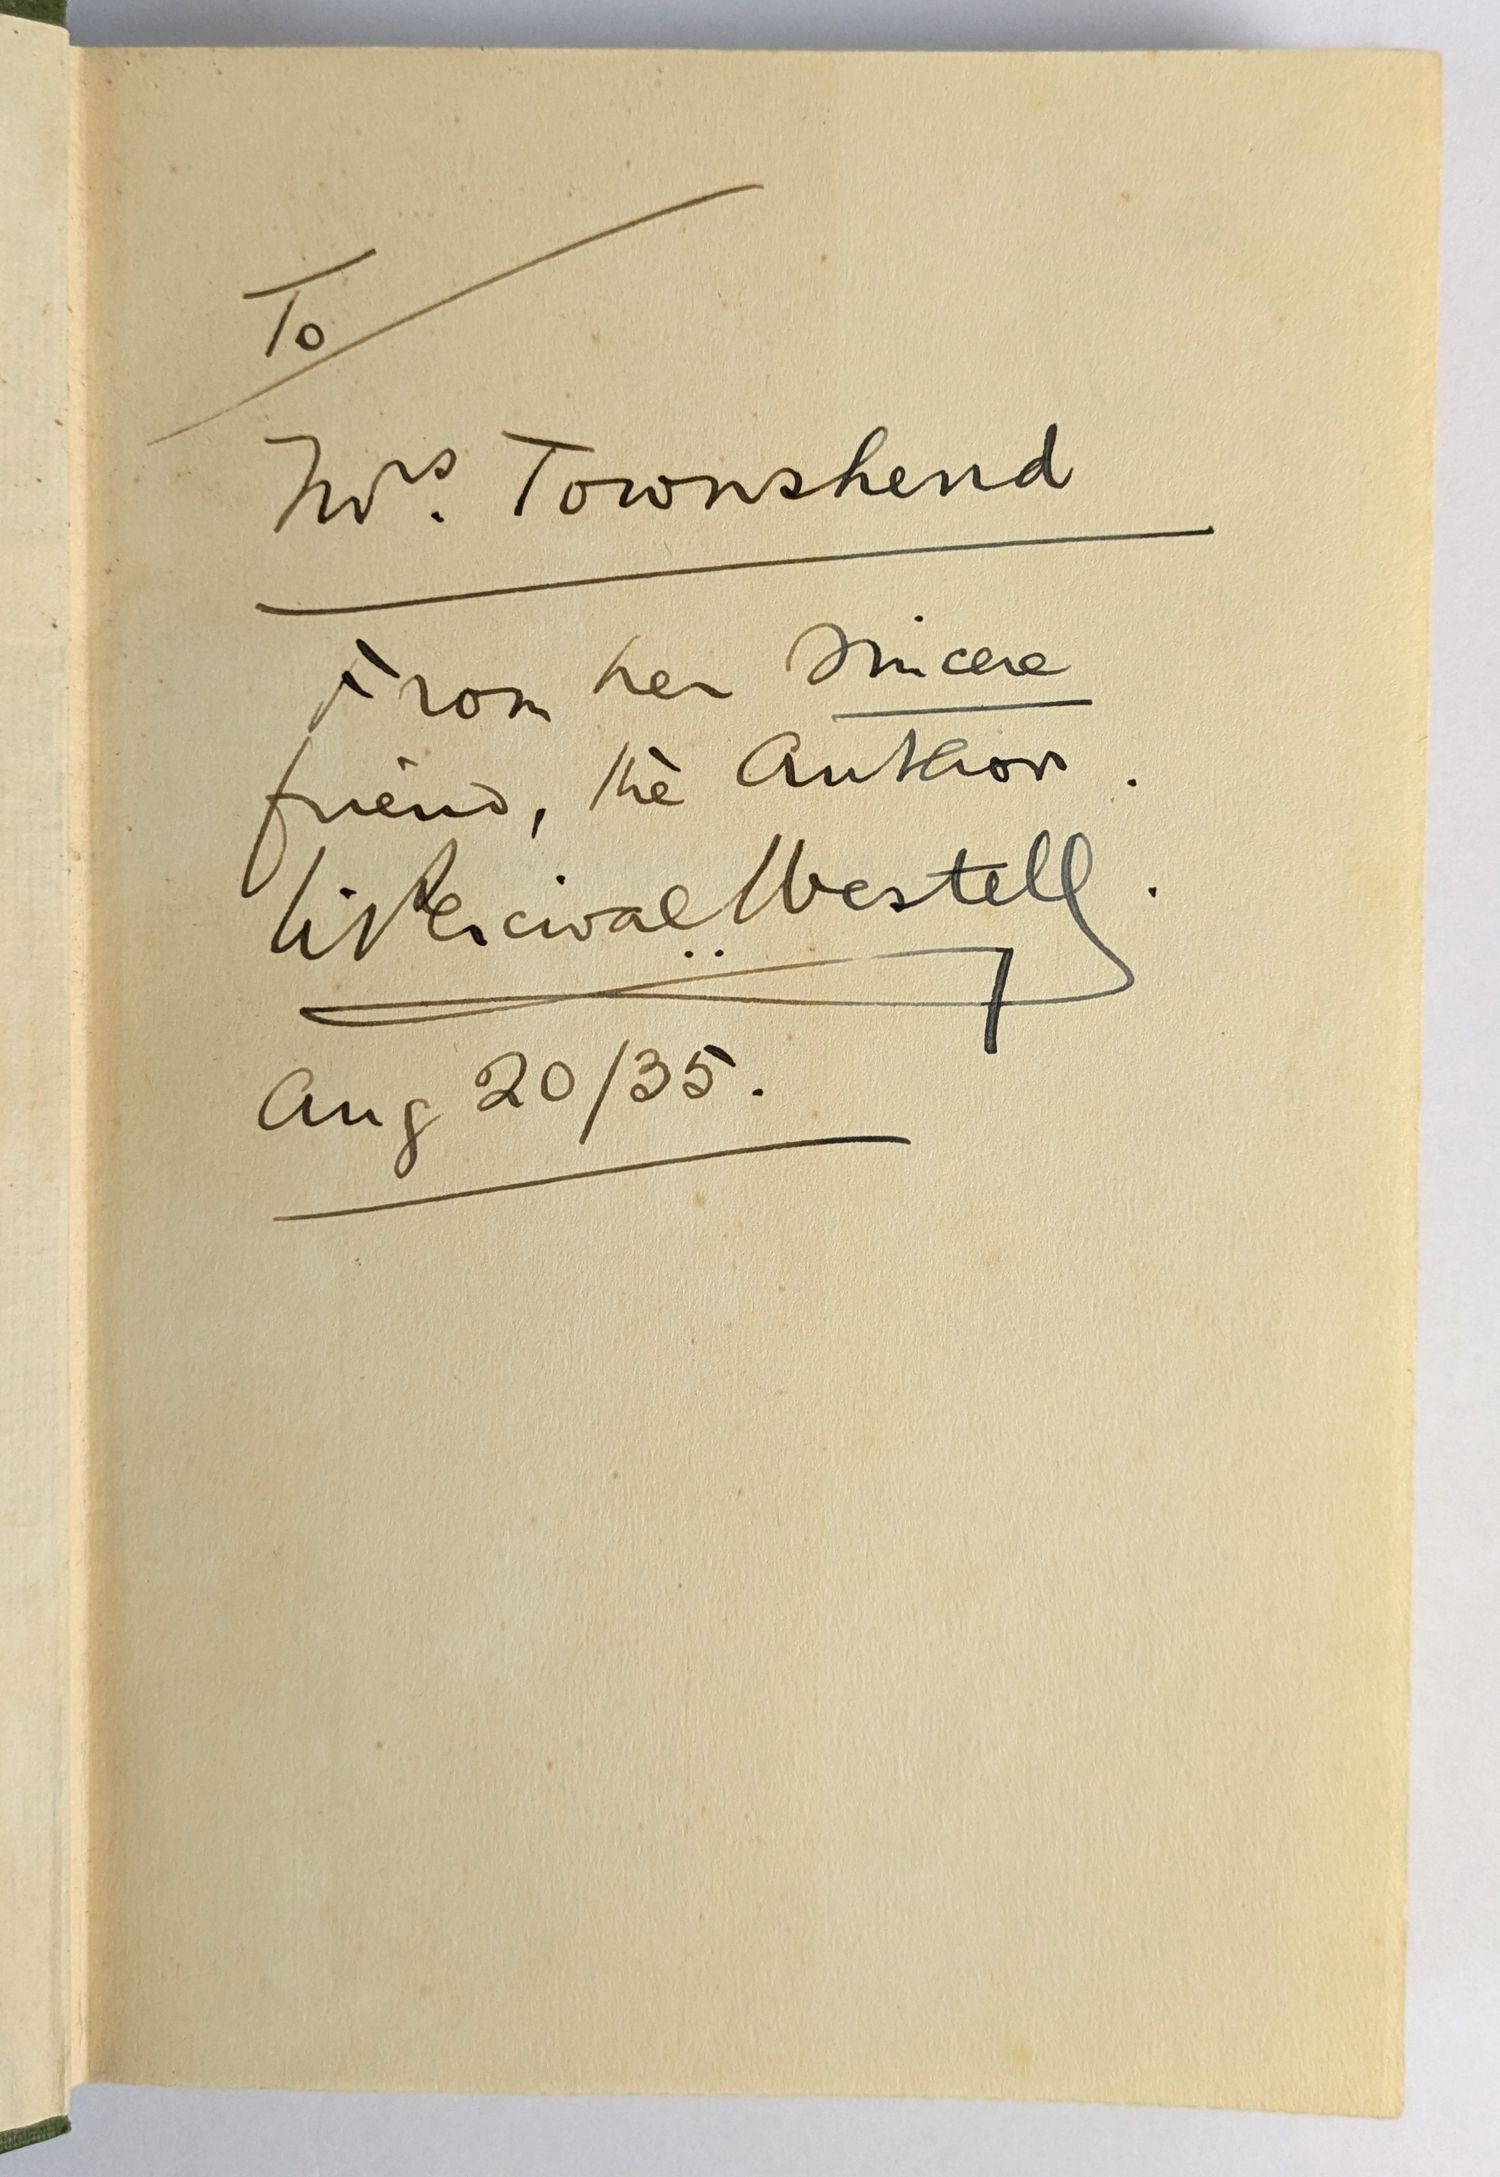 To
Mrs. Townshend
From her sincere
friend, the Author.
W. Percival Westell.
Aug 20/35.